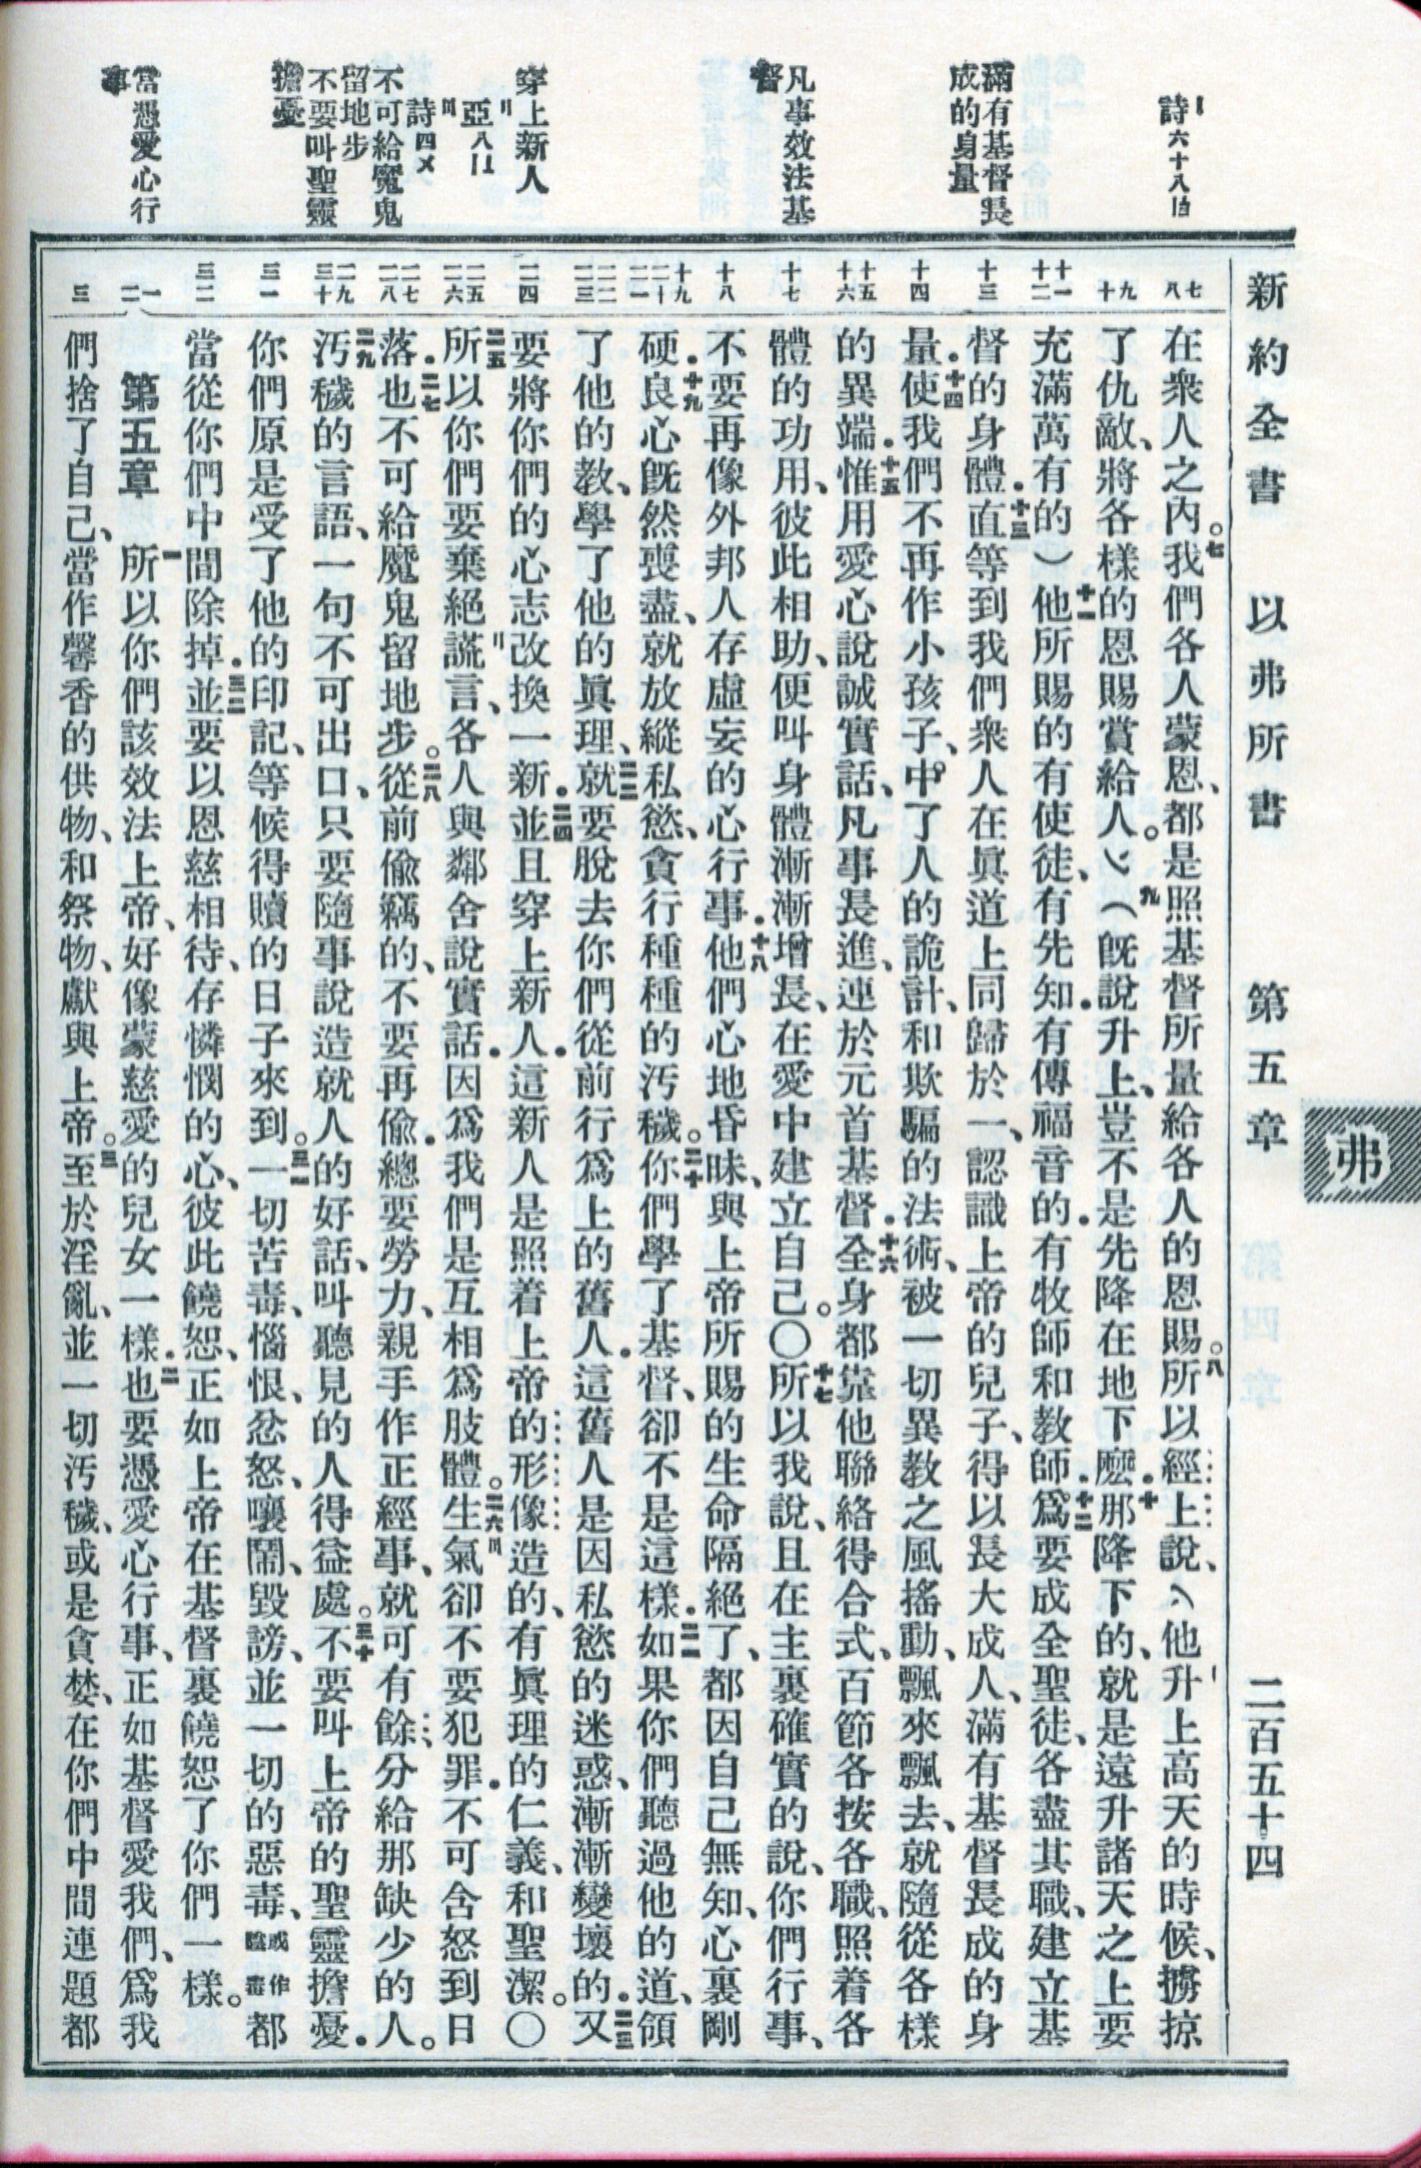 新約全書 以弗所書 第五章 二百五十四
弗
詩六十八
滿有基督長
成的身量
凡事效法基
督
穿上新人
亞八
詩四
不可給魔鬼
留地步
不要叫聖靈
擔憂
當憑愛心行
事
七 八
九 十
十一 十二
十三
十四
十五 十六
十七
十八
十九 二十 二一
二二 二三
二四
二五 二六
二七 二八
二九 三十
三一
三二
一 二
三
在衆人之內。七我們各人蒙恩、都是照基督所量給各人的恩賜。八所以經上說、(他升上高天的時候、擄掠
了仇敵、將各樣的恩賜賞給人。)九(旣說升上、豈不是先降在地下麽.十那降下的、就是遠升諸天之上要
充滿萬有的)十一他所賜的有使徒、有先知.有傳福音的.有牧師和教師.十二爲要成全聖徒、各盡其職、建立基
督的身體.十三直等到我們衆人在眞道上同歸於一、認識上帝的兒子、得以長大成人、滿有基督長成的身
量.十四使我們不再作小孩子、中了人的詭計、和欺騙的法術、被一切異教之風搖動、飄來飄去、就隨從各樣
的異端.十五惟用愛心說誠實話、凡事長進、連於元首基督.十六全身都靠他聯絡得合式、百節各按各職、照着各
體的功用、彼此相助、便叫身體漸漸增長、在愛中建立自己。〇十七所以我說、且在主裏確實的說、你們行事、
不要再像外邦人存虛妄的心行事.十八他們心地昏昧、與上帝所賜的生命隔絕了、都因自己無知、心裏剛
硬.十九良心旣然喪盡、就放縱私慾、貪行種種的汚穢。二十你們學了基督、卻不是這樣.二一如果你們聽過他的道、領
了他的教、學了他的眞理、二二就要脫去你們從前行爲上的舊人.這舊人是因私慾的迷惑、漸漸變壞的.二三又
要將你們的心志改換一新.二四並且穿上新人.這新人是照着上帝的形像造的、有眞理的仁義、和聖潔。〇
二五所以你們要棄絕謊言、各人與鄰舍說實話.因爲我們是互相爲肢體。二六生氣卻不要犯罪.不可含怒到日
落.二七也不可給魔鬼留地步。二八從前偸竊的、不要再偸.總要勞力、親手作正經事、就可有餘、分給那缺少的人。
二九汚穢的言語、一句不可出口、只要隨事說造就人的好話、叫聽見的人得益處。三十不要叫上帝的聖靈擔憂.
你們原是受了他的印記、等候得贖的日子來到。三一一切苦毒、惱恨、忿怒、嚷鬧、毀謗、並一切的惡毒、或作陰毒都
當從你們中間除掉.三二並要以恩慈相待、存憐憫的心、彼此饒恕、正如上帝在基督裏饒恕了你們一樣。
第五章 一所以你們該效法上帝、好像蒙慈愛的兒女一樣.二也要憑愛心行事、正如基督愛我們、爲我
們捨了自己、當作馨香的供物、和祭物、獻與上帝。三至於淫亂、並一切汚穢、或是貪婪、在你們中間連題都